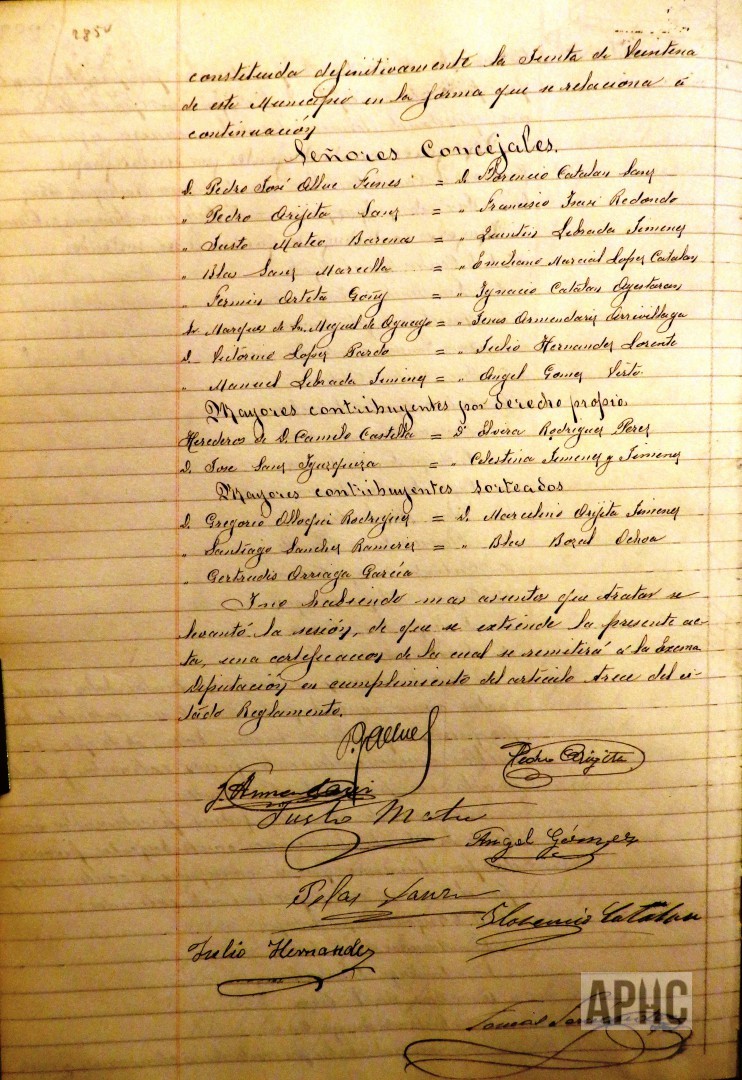 constituida definitivamente la Junta de Veintena
de este Municipio en la forma que se relaciona á
continuación
Señores Concejales.
D. Pedro José Allue Funes = D. Florencio Catalan Sanz
" Pedro Arijita Sanz = " Francisco Irasi Redondo
" Justo Mateo Barena = " Quintin Lebrada Jimenez
" Blas Sanz Marcilla = " Emiliano Marcial Lopez Catalan
" Fermin Arteta Goñy = " Ygnacio Catalan Ayestaran
Sr Marques de Sn Miguel de Aguayo = " Jesus Armendariz Arrivillaga
D. Victorino Lopez Pardo = " Julio Hernandez Lorente
" Manuel Lebrada Jimenez = " Angel Gomez Virto
Mayores contribuyentes por derecho propio
Herederos de D. Camilo Castilla = Dª Elvira Rodriguez Perez
D. Jose Sanz = " Celestina Jimenez y Jimenez
Mayores contribuyentes sorteados
D. Gregorio Alloqui Rodriguez = D. Marcelino Arijita Jimenez
" Santiago Sanchez Ramirez = " Blas Bozal Ochoa
" Gertrudis Arriaga García
Y no habiendo mas asuntos que tratar se
levantó la sesión, de que se extiende la presente ac-
ta, una certificacion de la cual se remitirá á la Excma
Diputación en cumplimiento del artículo trece del ci-
tado Reglamento.
P. J. Allue
Pedro Arijita
J. Armendariz
Justo Mateo
Angel Gómez
Blas Sanz
Florencio Catalan
Julio Hernandez
APHC